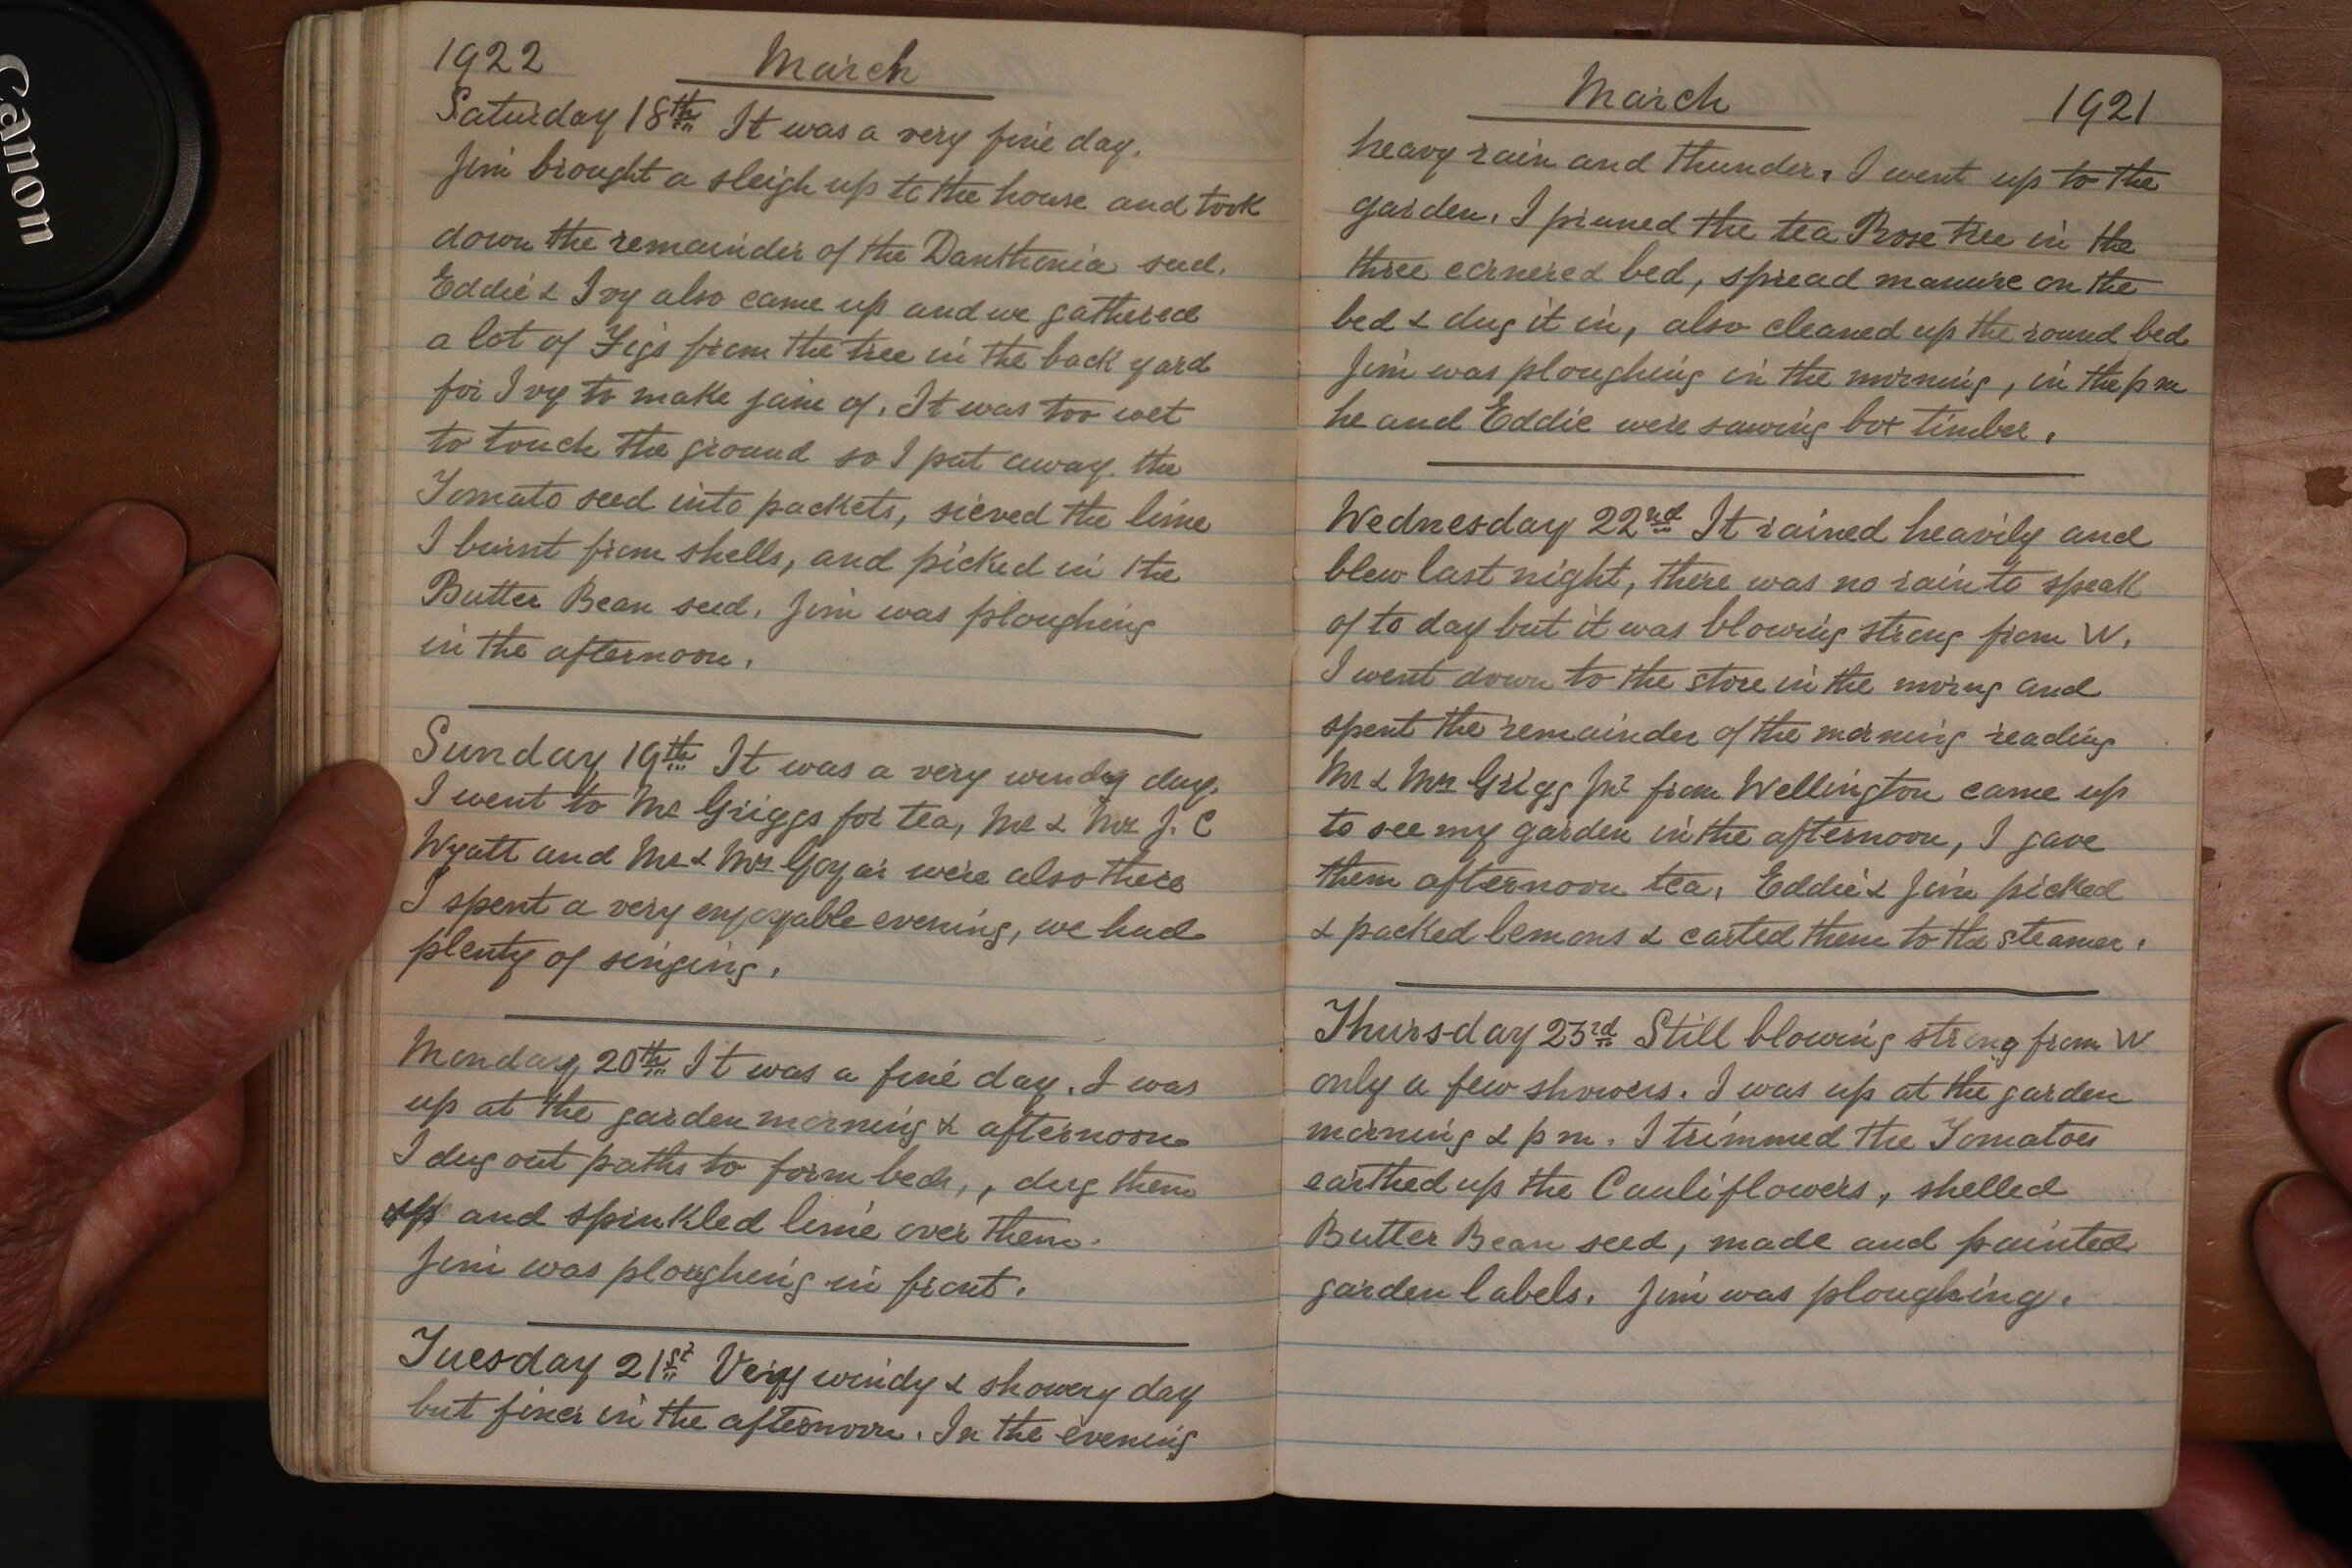 Canon
1922 March
Saturday 18th It was a very fine day.
Jim brought a sleigh up to the house and took
down the remainder of the Danthonia seed.
Eddie & Ivy also came up and we gathered
a lot of Figs from the tree in the back yard
for Ivy to make jam of. It was too wet
to touch the ground so I put away the
Tomato seed into packets, sieved the lime
I burnt from shells, and picked in the
Butter Bean seed. Jim was ploughing
in the afternoon.
Sunday 19th It was a very windy day.
I went to Mr Griggs for tea, Mr & Mrs J. C
Wyatt and Mr & Mrs Goyar were also there
I spent a very enjoyable evening, we had
plenty of singing.
Monday 20th It was a fine day. I was
up at the garden morning & afternoon
I dug out paths to form beds, , dug them
up and spinkled lime over them.
Jim was ploughing in front.
Tuesday 21st Very windy & showery day
but finer in the afternoon. In the evening
March 1921
heavy rain and thunder. I went up to the
garden. I pruned the tea Rose tree in the
three cornered bed, spread manure on the
bed & dug it in, also cleaned up the round bed
Jim was ploughing in the morning, in the pm
he and Eddie were sawing box timber.
Wednesday 22nd It rained heavily and
blew last night, there was no rain to speak
of to day but it was blowing strong from W.
I went down to the store in the morng and
spent the remainder of the morning reading
Mr & Mrs Griggs Jnr from Wellington came up
to see my garden in the afternoon, I gave
them afternoon tea. Eddie & Jim picked
& packed lemons & carted them to the steamer.
Thursday 23rd Still blowing strong from W
only a few showers. I was up at the garden
morning & pm. I trimmed the Tomatoes
earthed up the Cauliflowers, shelled
Butter Bean seed, made and painted
garden labels. Jim was ploughing.